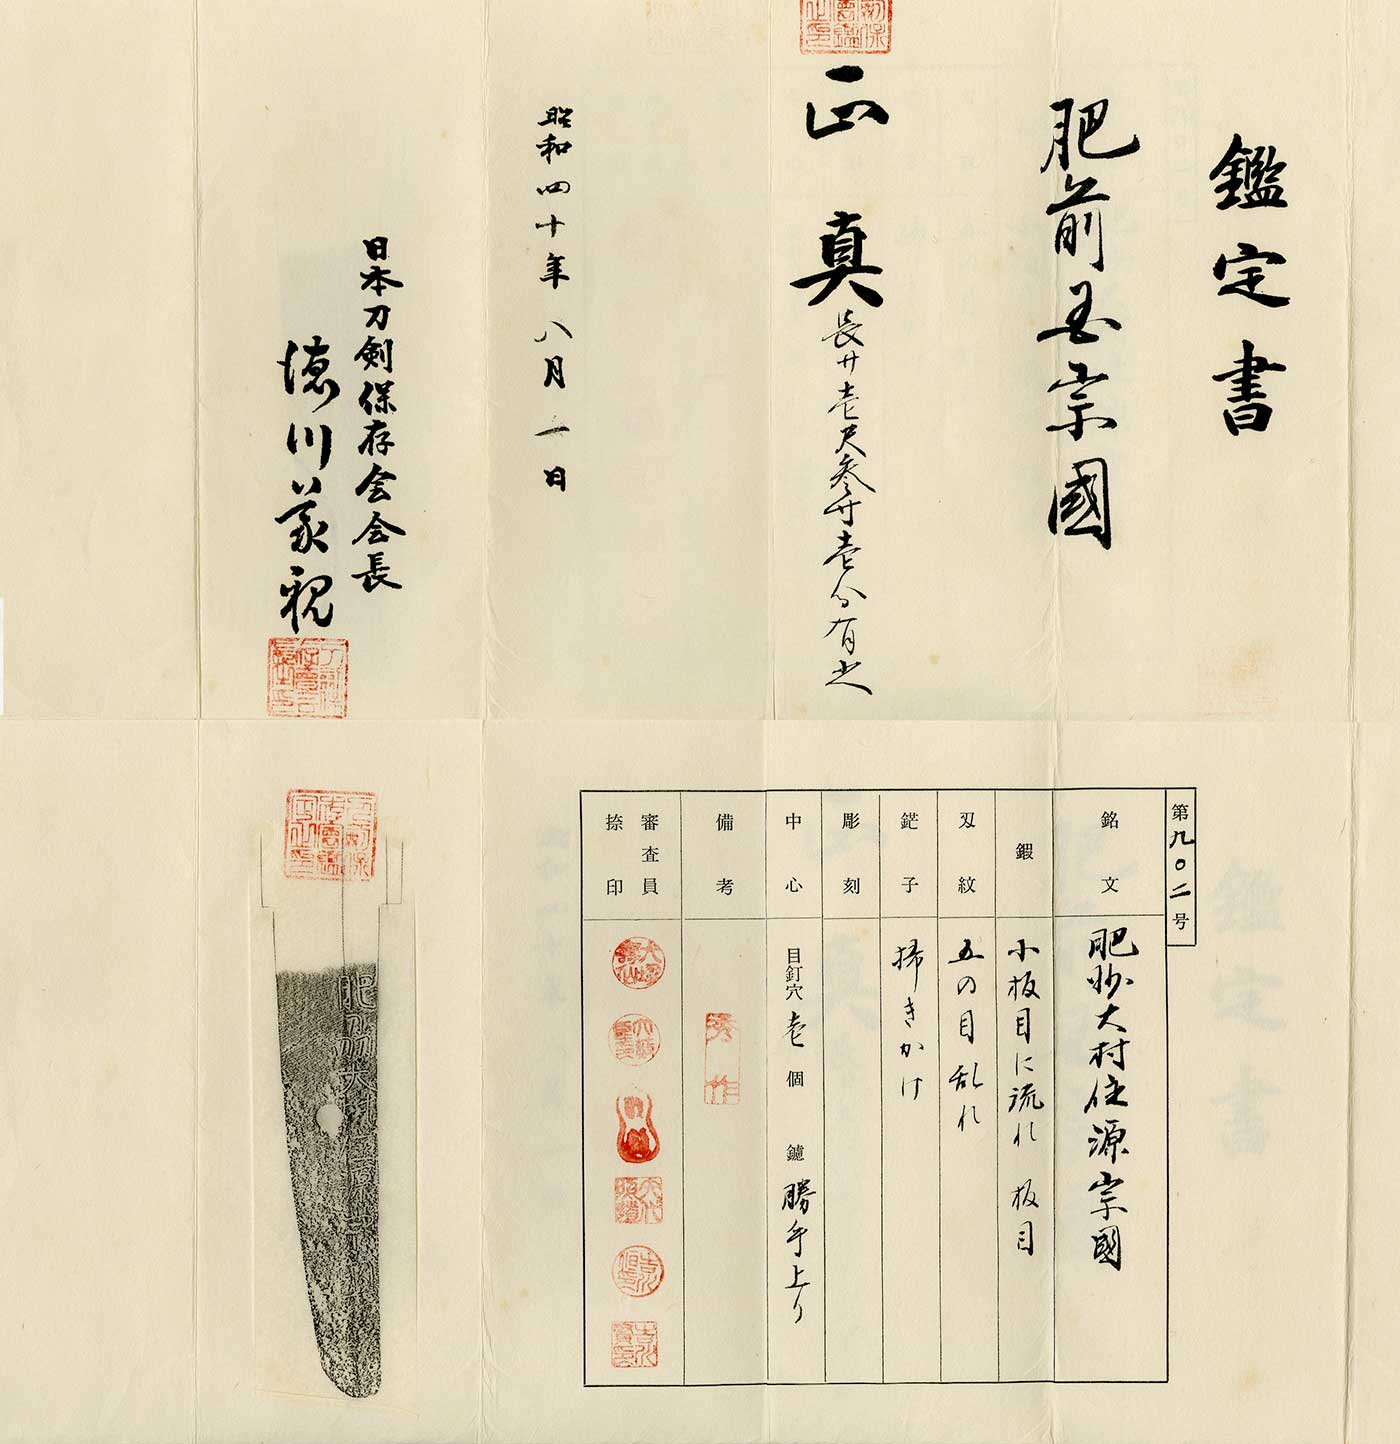 鑑定書
肥前国宗國
正真
長サ壱尺参寸壱分有之
昭和四十年八月一日
日本刀剣保存会会長
徳川義親
第九〇二号
銘文
肥州大村住源宗國
鍜
小板目に流れ 板目
刄紋
五の目乱れ
鋩子
掃きかけ
彫刻
中心
目釘穴 壱 個 鑢 勝手上り
備考
秀作
審査員
捺印